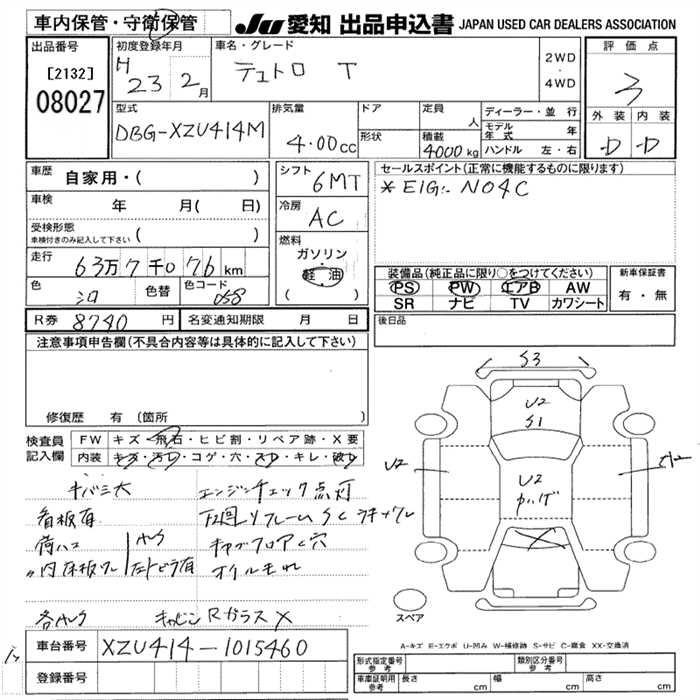 車内保管・守衛保管
JU 愛知 出品申込書 JAPAN USED CAR DEALERS ASSOCIATION
出品番号
[2132]
08027
初度登録年月
H 23 2月
車名・グレード
デュトロ T
2WD
・
4WD
評価点
3
外装 内装
D D
型式
DBG-XZU414M
排気量
4.00cc
ドア
形状
定員 人
積載 4000kg
ディーラー・並行
モデル年式 年
ハンドル 左・右
車歴 自家用・( )
車検 年 月( 日)
受検形態 ( )
車検付きのみ記入して下さい
走行 63万7千076km
色 シロ 色替 色コード 058
シフト
6MT
冷房
AC
燃料
ガソリン
軽油
( )
セールスポイント(正常に機能するものに限ります)
* EIG:- NO4C
装備品(純正品に限り○をつけてください)
PS PW エアB AW
SR ナビ TV カワシート
新車保証書
有・無
R券 8740円 名変通知期限 月 日
後日品
注意事項申告欄(不具合内容等は具体的に記入して下さい)
修復歴 有 (箇所
検査員記入欄
FW キズ・飛石・ヒビ割・リペア跡・X要
内装 キズ・汚レ・コゲ・穴・スレ・キレ・破レ
キバミ大 エンジンチェック点灯
看板有 下回リフレーム SC
荷ハコ キャブフロア C穴
〃内 オイルモレ
キャビンRガラスX
S3
U2
S1
U2
U2
スペア
A-キズ E-エクボ U-凹み W-補修跡 S-サビ C-腐食 XX-交換済
車台番号 XZU414-1015460
登録番号
形式指定番号 参考 類別区分番号 参考
車庫証明用 参考 長さ cm 幅 cm 高さ cm